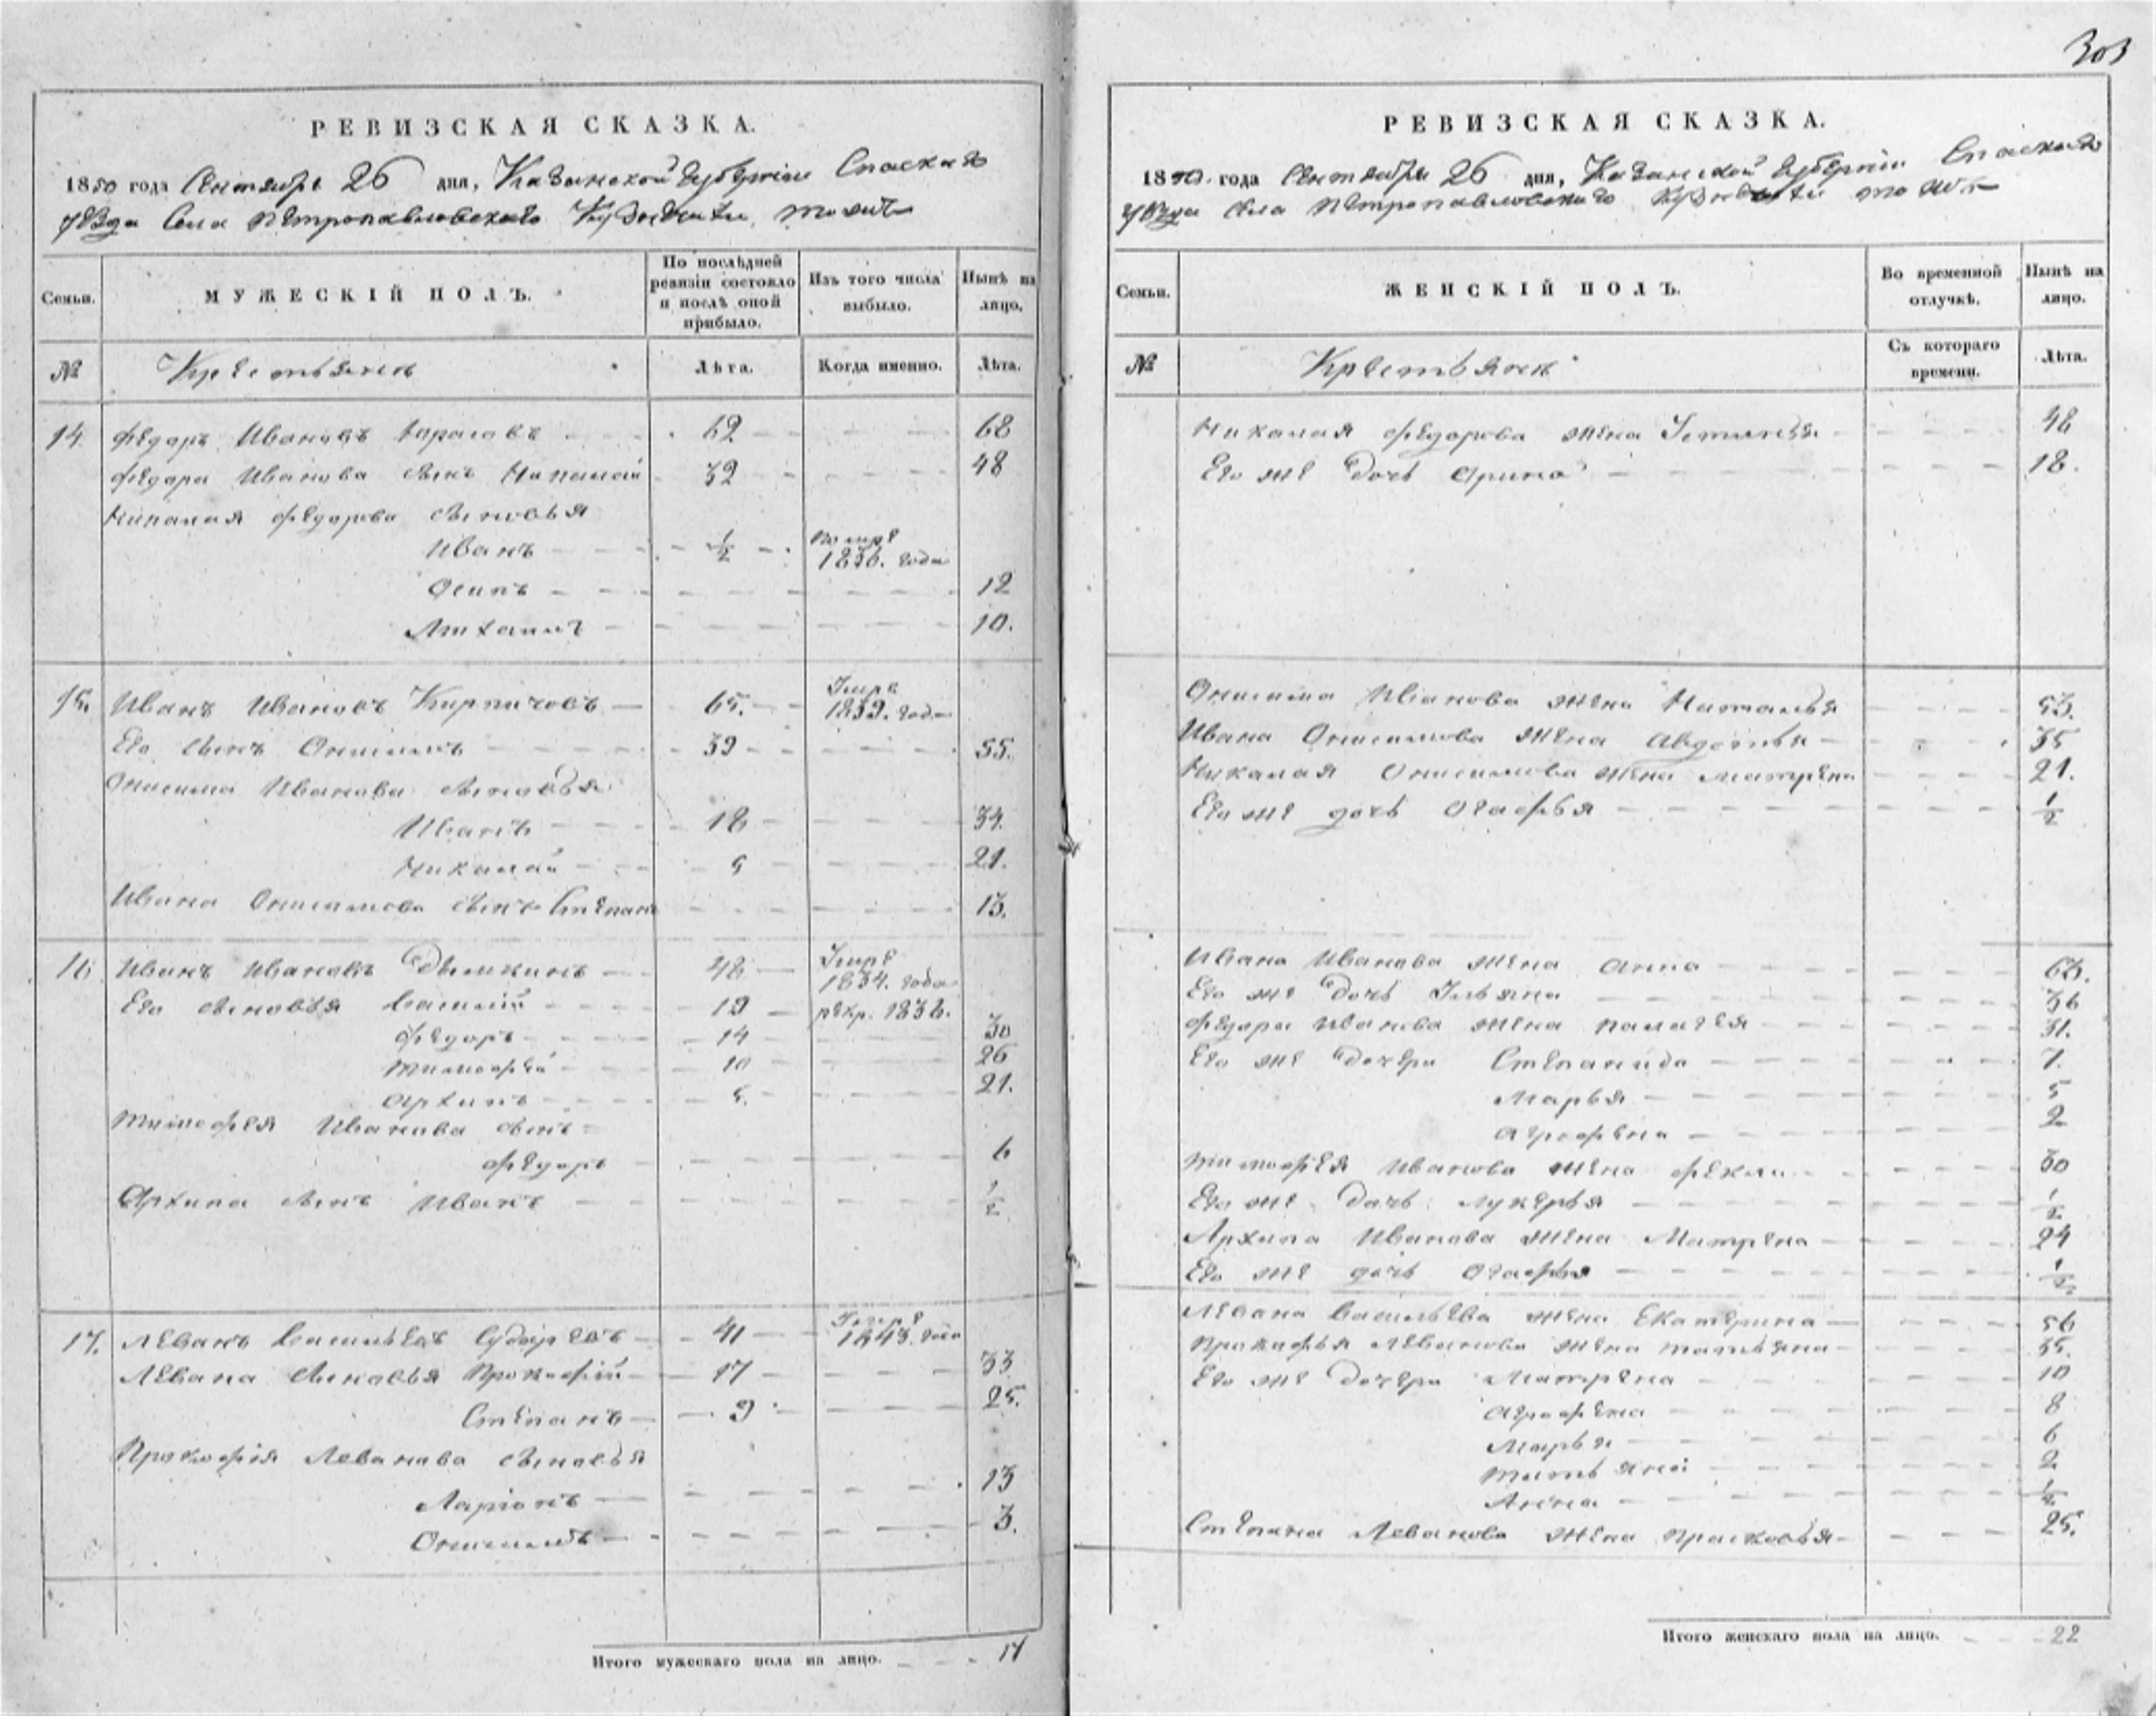 303
РЕВИЗСКАЯ СКАЗКА.
1850 года Сентября 26 дня, Казанской губернiи Спаскаго
уѣзда Села Петропавловскаго тожъ
Семьи. МУЖЕСКІЙ ПОЛЪ. По послѣдней ревизіи состояло и послѣ оной прибыло. Изъ того числа выбыло. Нынѣ на лицо.
№ Крестьяне Лѣта. Когда именно. Лѣта.
14. Федоръ Ивановъ 62 68
Федора Ивановa сынъ Николай 32 48
Николая Федорова сыновья
Иванъ 1/2 Помре 1836. года
Осипъ 12
10.
15. Иванъ Ивановъ Кирпичовъ 65. Умре 1839. года
Его сынъ Онисимъ 39 55.
Онисима Иванова сыновья
Иванъ 18 34.
Николай 5 21.
Ивана Онисимова сынъ Степанъ 13.
16. Иванъ Ивановъ 48 Умре 1834. года
Его сыновья Василiй 19 рекр. 1836.
Федоръ 14 30
Тимофей 10 26
Архипъ 5. 21.
Тимофея Иванова сынъ
Федоръ 6
Архипа сынъ Иванъ 1/2
17. Леванъ Васильевъ 41 Умре 1843. года
Левана сыновья Прокофiй 17 33
Степанъ 9 25.
Прокофiя Леванова сыновья
Ларiонъ 13
Онисимъ 3.
Итого мужескаго пола на лицо. 17
РЕВИЗСКАЯ СКАЗКА.
1850. года Сентября 26 дня, Казанской губернiи Спаскаго
уѣзда Села Петропавловскаго тожъ
Семьи. ЖЕНСКІЙ ПОЛЪ. Во временной отлучкѣ. Нынѣ на лицо.
№ Крестьяне Съ котораго времени. Лѣта.
Николая Федорова жена Устинья 48
Его же дочь Арина 18.
Онисима Иванова жена Наталья 53.
Ивана Онисимова жена Авдотья 35
Николая Онисимова жена Матрена 21.
Его же дочь Огафья 1/2
Ивана Иванова жена Анна 66.
Его же дочь Ульяна 36
Федора Иванова жена Палагея 31.
Его же дочери Степанида 7.
Марья 5
Аграфена 2
Тимофея Иванова жена Фекла 30
Его же дочь Лукерья 1/2
Архипа Иванова жена Матрена 24
Его же дочь Огафья 1/2
Левана Васильева жена Екатерина 56
Прокофья Леванова жена Татьяна 35.
Его же дочери Матрена 10
Аграфена 8
Марья 6
Татьяна 2
Анна 1/2
Степана Леванова жена Прасковья 25.
Итого женскаго пола на лицо. 22